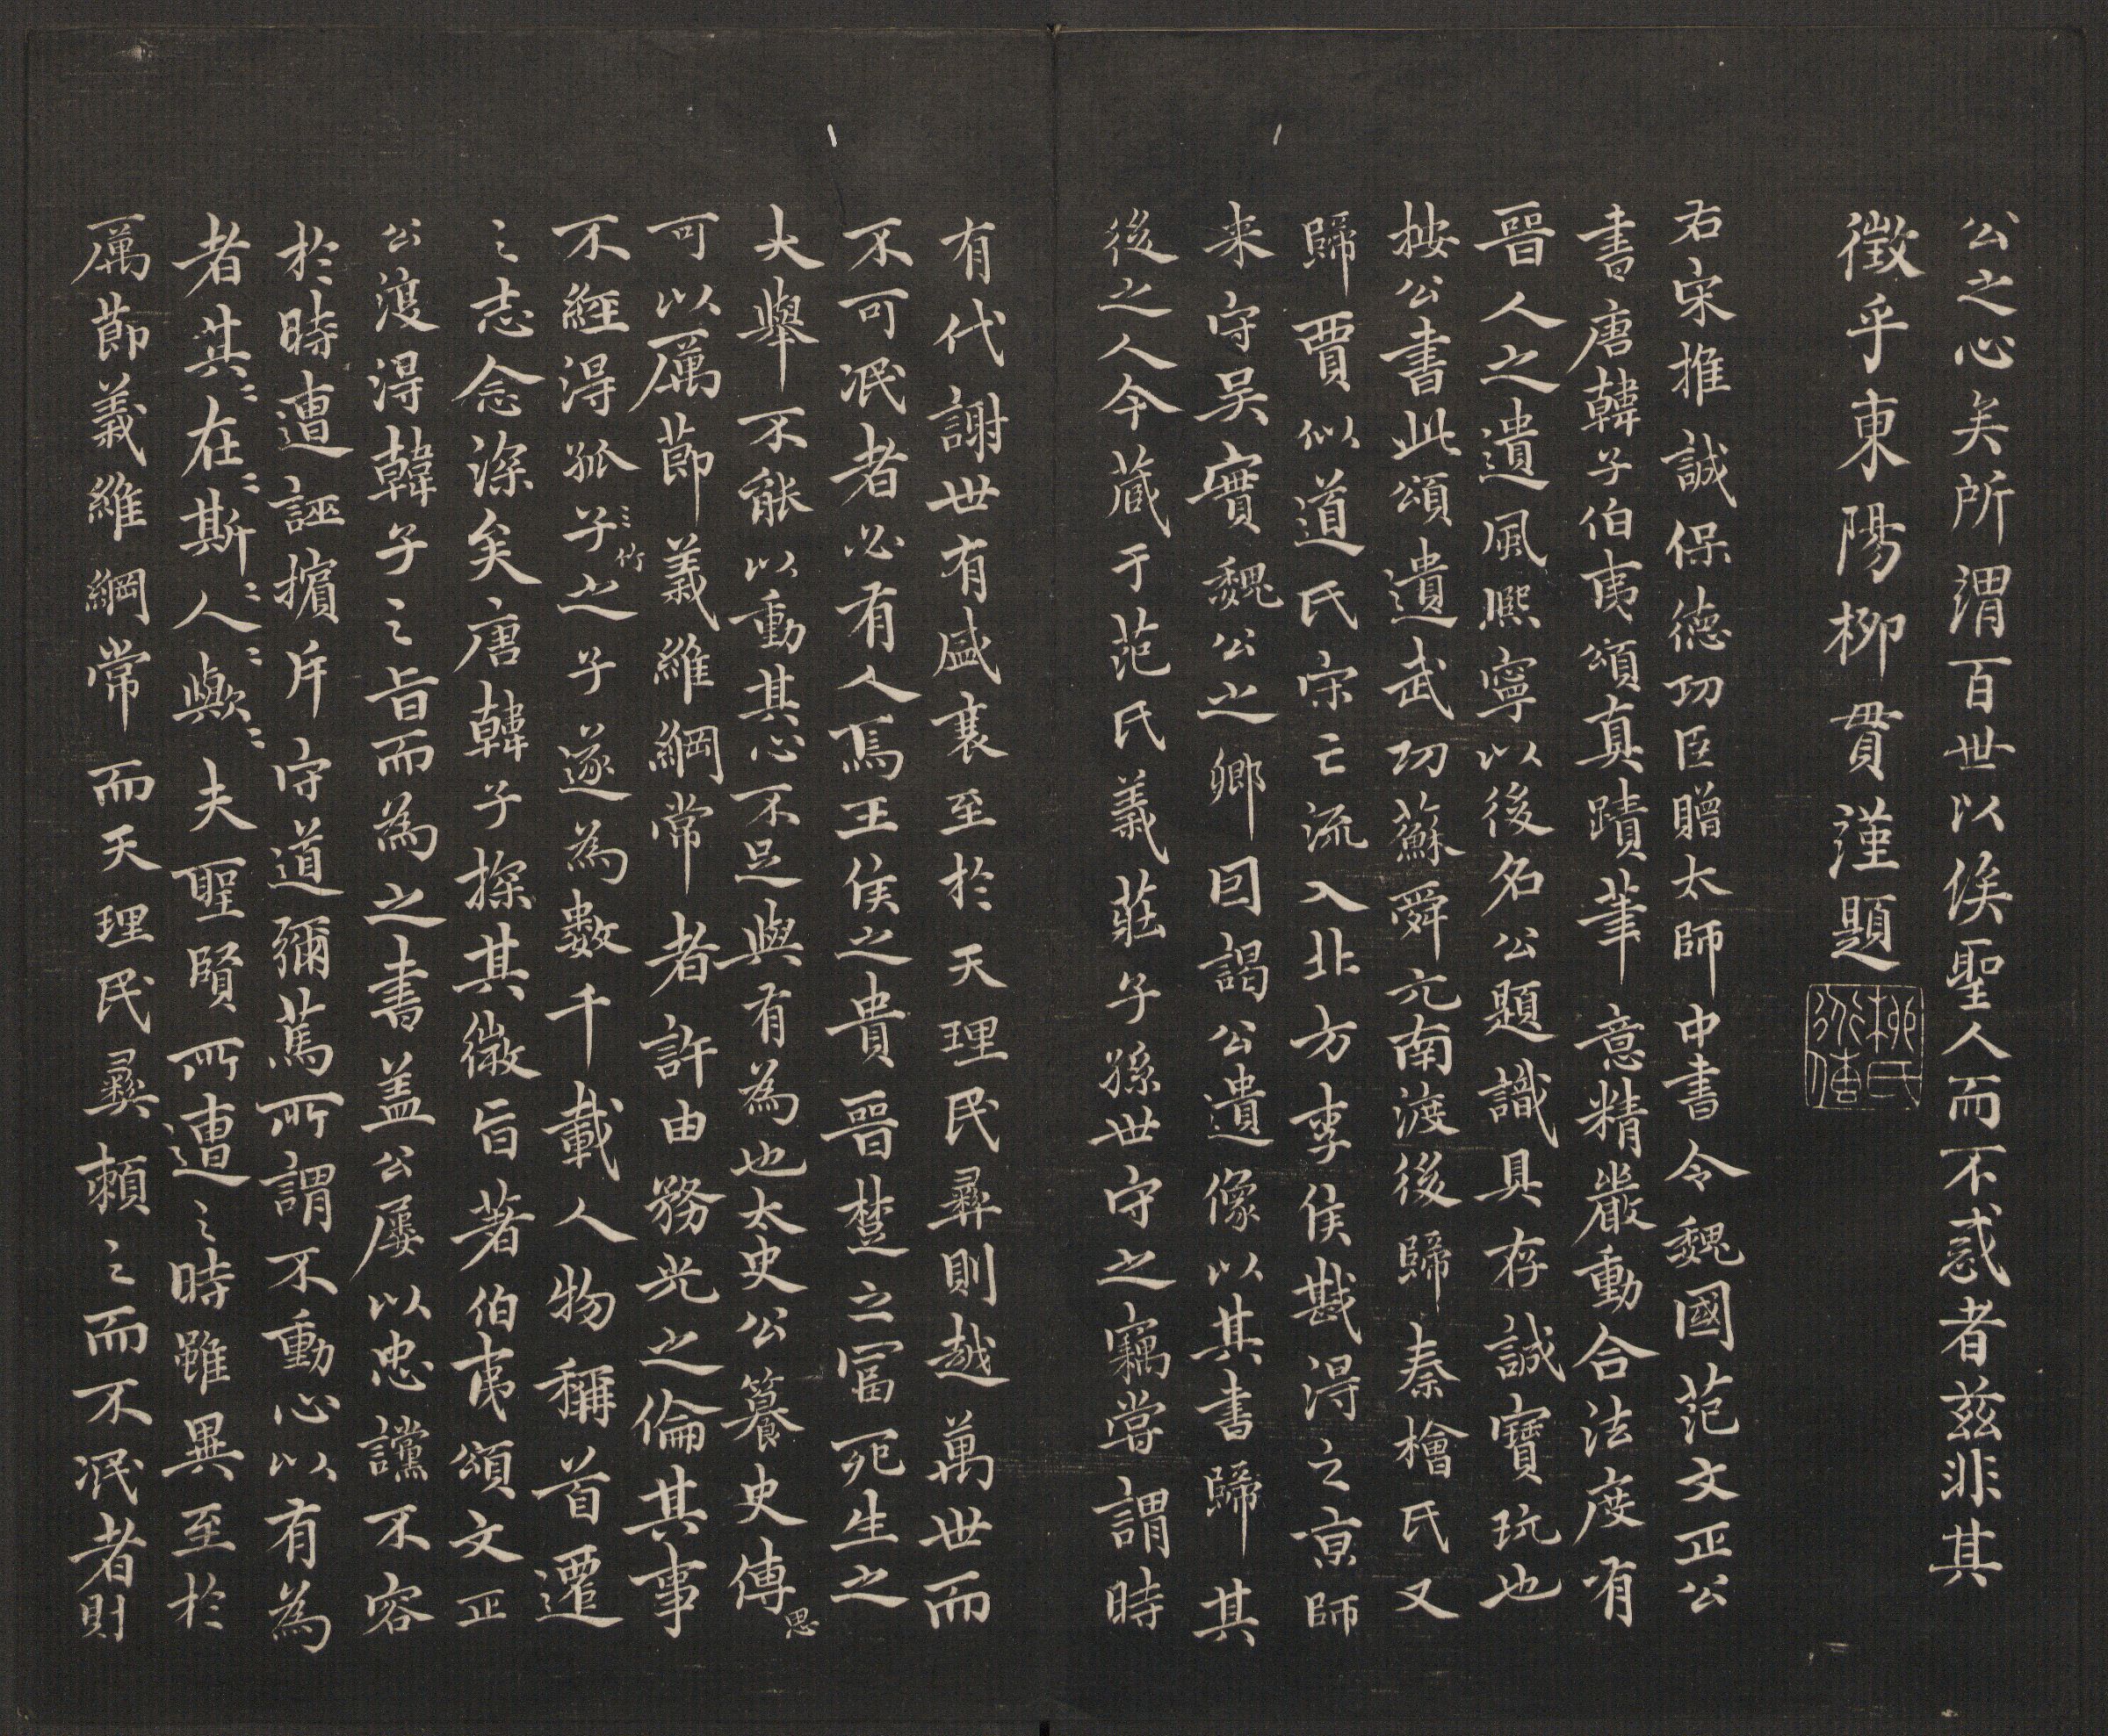 公之心矣所謂百世以俟聖人而不惑者茲非其
徵乎東陽柳貫謹題
柳氏
右宋推誠保德功臣贈太師中書令魏國范文正公
書唐韓子伯夷頌真蹟筆意精嚴動合法度有
晉人之遺風熙寧以後名公題識具存誠寶玩也
按公書此頌遺武功蘇舜元南渡後歸秦檜氏又
歸賈似道氏宋亡流入北方李侯戡得之京師
来守吴實魏公之鄉因謁公遺像以其書歸其
後之人今蔵于范氏義莊子孫世守之竊甞謂時
有代謝世有盛衰至於天理民彞則越萬世而
不可泯者必有人焉王侯之貴晉楚之富死生之
大舉不能以動其心不足與有為也太史公篹史傳思
可以厲莭義維綱常者許由務光之倫其事
不經得孤竹子之子遂為數千載人物稱首遷
之志念深矣唐韓子探其微旨著伯夷頌文正
公復得韓子之旨而為之書盖公屢以忠讜不容
於時遭誣擯斥守道彌篤所謂不動心以有為
者其〻在〻斯〻人〻歟〻夫聖賢所遭之時雖異至於
厲莭義維綱常而天理民彞頼之而不泯者則